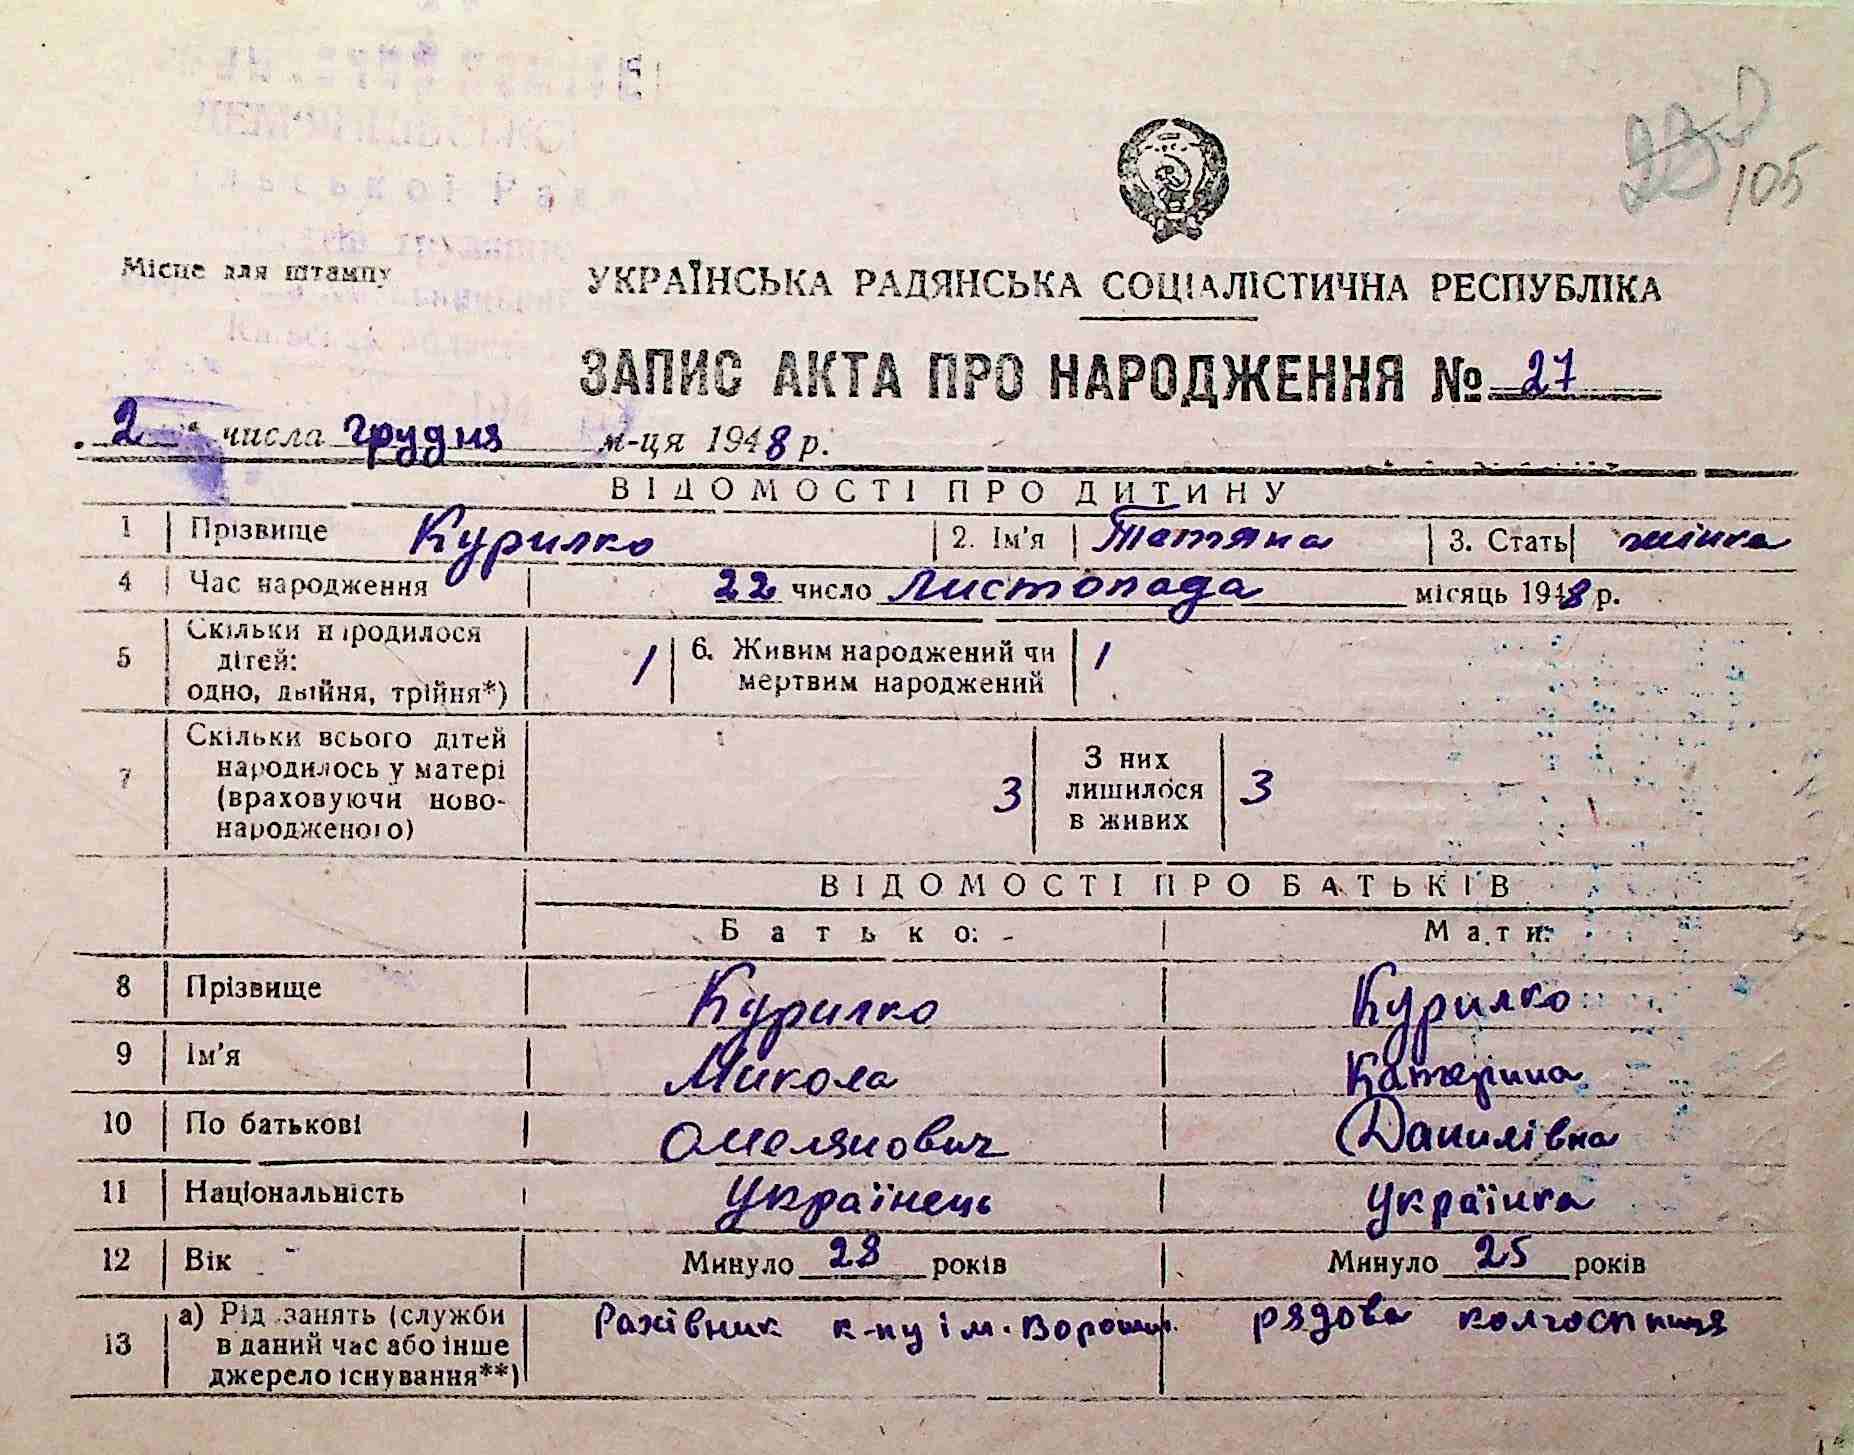 105
Місце для штампу
УКРАЇНСЬКА РАДЯНСЬКА СОЦІАЛІСТИЧНА РЕСПУБЛІКА
ЗАПИС АКТА ПРО НАРОДЖЕННЯ № 27
2 числа грудня м-ця 1948 р.
ВІДОМОСТІ ПРО ДИТИНУ
1 Прізвище Курилко 2. Ім'я Тетяна 3. Стать жінка
4 Час народження 22 число Листопада місяць 1948 р.
5 Скільки народилося дітей: одно, двійня, трійня*) 1 6. Живим народжений чи мертвим народжений 1
7 Скільки всього дітей народилось у матері (враховуючи ново-народженого) 3 З них лишилося в живих 3
ВІДОМОСТІ ПРО БАТЬКІВ
Батько: Мати:
8 Прізвище Курилко Курилко
9 Ім'я Микола Катеріна
10 По батькові Омелянович Данилівна
11 Національність Українець Українка
12 Вік Минуло 28 років Минуло 25 років
13 а) Рід занять (служби в даний час або інше джерело існування**) Рахівник к-пу ім. Ворошил. рядова колгоспниця